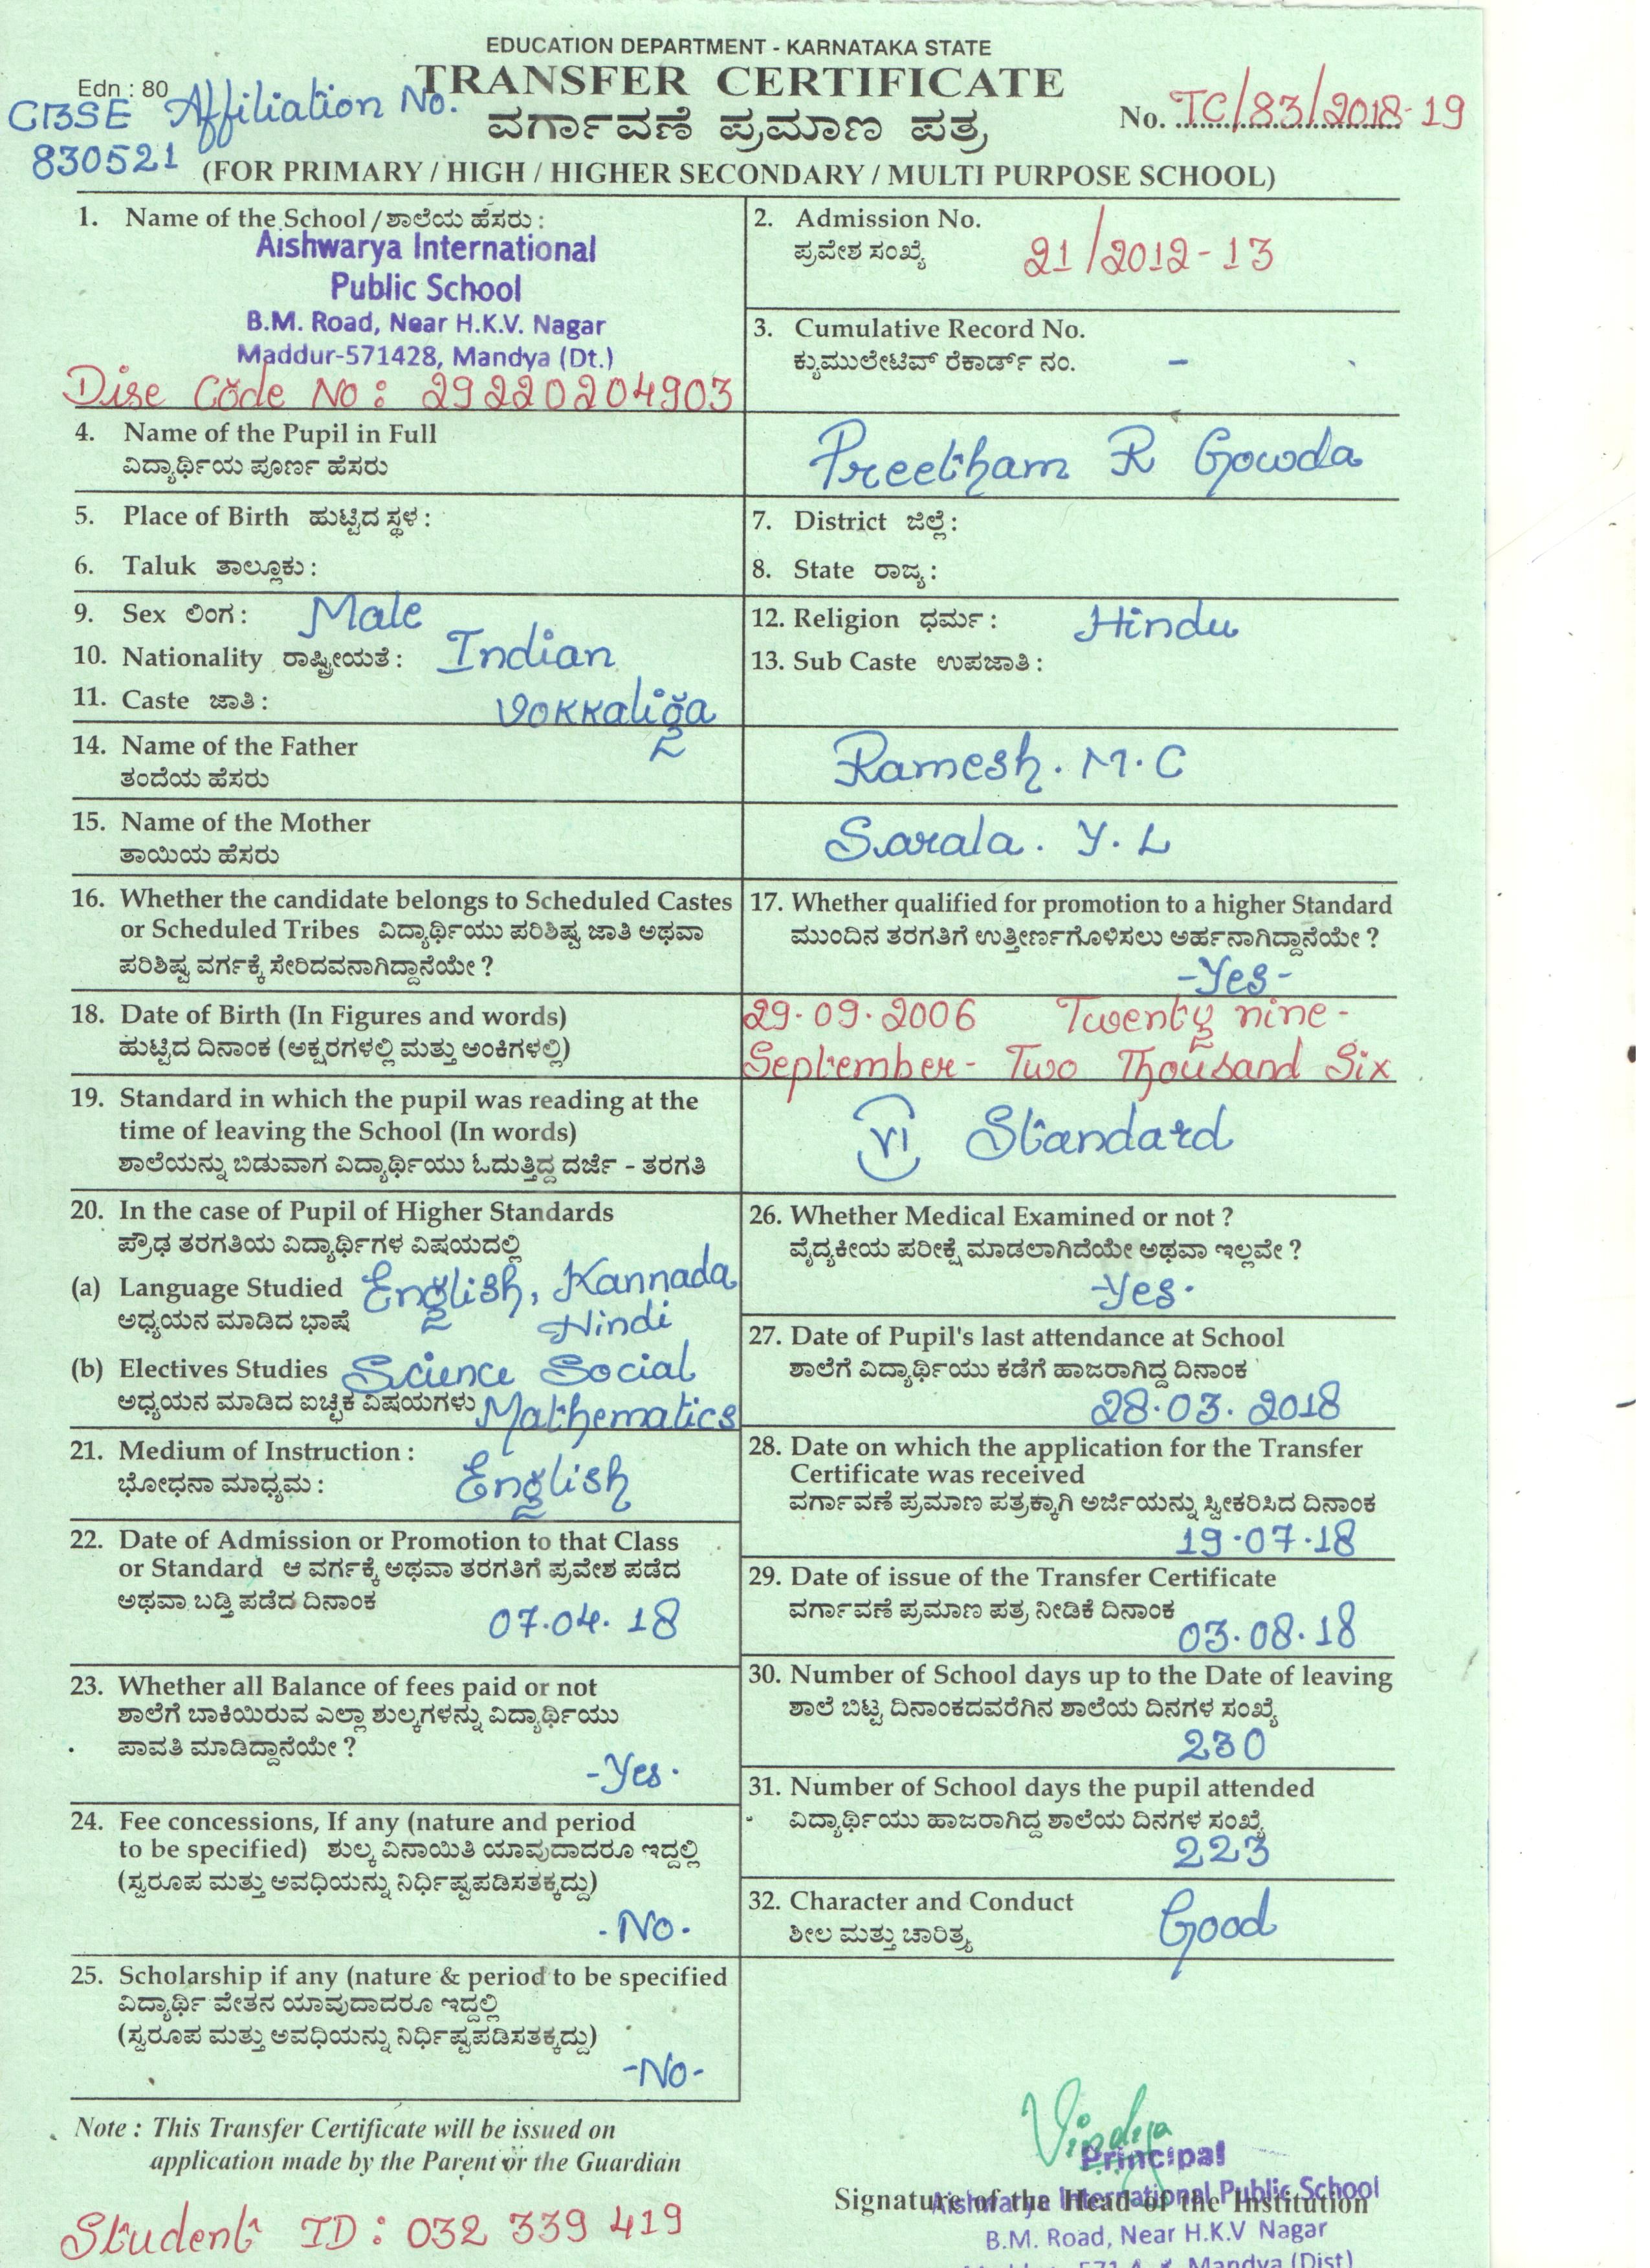 EDUCATION DEPARTMENT - KARNATAKA STATE
Edn : 80
TRANSFER CERTIFICATE
CBSE Affiliation No.
830521
ವರ್ಗಾವಣೆ ಪ್ರಮಾಣ ಪತ್ರ
No. TC/83/2018-19
(FOR PRIMARY / HIGH / HIGHER SECONDARY / MULTI PURPOSE SCHOOL)
1. Name of the School / ಶಾಲೆಯ ಹೆಸರು :
Aishwarya International
Public School
B.M. Road, Near H.K.V. Nagar
Maddur-571428, Mandya (Dt.)
Dise Code No : 29220204903
2. Admission No.
ಪ್ರವೇಶ ಸಂಖ್ಯೆ 21/2012-13
3. Cumulative Record No.
ಕ್ಯುಮುಲೇಟಿವ್ ರೆಕಾರ್ಡ್ ನಂ. -
4. Name of the Pupil in Full
ವಿದ್ಯಾರ್ಥಿಯ ಪೂರ್ಣ ಹೆಸರು
Preetham R Gowda
5. Place of Birth ಹುಟ್ಟಿದ ಸ್ಥಳ :
6. Taluk ತಾಲ್ಲೂಕು :
7. District ಜಿಲ್ಲೆ :
8. State ರಾಜ್ಯ :
9. Sex ಲಿಂಗ : Male
10. Nationality ರಾಷ್ಟ್ರೀಯತೆ : Indian
11. Caste ಜಾತಿ : Vokkaliga
12. Religion ಧರ್ಮ : Hindu
13. Sub Caste ಉಪಜಾತಿ :
14. Name of the Father
ತಂದೆಯ ಹೆಸರು
Ramesh. M. C
15. Name of the Mother
ತಾಯಿಯ ಹೆಸರು
Sarala. Y. L
16. Whether the candidate belongs to Scheduled Castes
or Scheduled Tribes ವಿದ್ಯಾರ್ಥಿಯು ಪರಿಶಿಷ್ಟ ಜಾತಿ ಅಥವಾ
ಪರಿಶಿಷ್ಟ ವರ್ಗಕ್ಕೆ ಸೇರಿದವನಾಗಿದ್ದಾನೆಯೇ ?
17. Whether qualified for promotion to a higher Standard
ಮುಂದಿನ ತರಗತಿಗೆ ಉತ್ತೀರ್ಣಗೊಳಿಸಲು ಅರ್ಹನಾಗಿದ್ದಾನೆಯೇ ?
-Yes-
18. Date of Birth (In Figures and words)
ಹುಟ್ಟಿದ ದಿನಾಂಕ (ಅಕ್ಷರಗಳಲ್ಲಿ ಮತ್ತು ಅಂಕಿಗಳಲ್ಲಿ)
29.09.2006 Twenty nine-
September- Two Thousand Six
19. Standard in which the pupil was reading at the
time of leaving the School (In words)
ಶಾಲೆಯನ್ನು ಬಿಡುವಾಗ ವಿದ್ಯಾರ್ಥಿಯು ಓದುತ್ತಿದ್ದ ದರ್ಜೆ - ತರಗತಿ
VI Standard
20. In the case of Pupil of Higher Standards
ಪ್ರೌಢ ತರಗತಿಯ ವಿದ್ಯಾರ್ಥಿಗಳ ವಿಷಯದಲ್ಲಿ
(a) Language Studied English, Kannada
ಅಧ್ಯಯನ ಮಾಡಿದ ಭಾಷೆ Hindi
(b) Electives Studies Science Social
ಅಧ್ಯಯನ ಮಾಡಿದ ಐಚ್ಛಿಕ ವಿಷಯಗಳು Mathematics
21. Medium of Instruction :
ಭೋಧನಾ ಮಾಧ್ಯಮ : English
22. Date of Admission or Promotion to that Class
or Standard ಆ ವರ್ಗಕ್ಕೆ ಅಥವಾ ತರಗತಿಗೆ ಪ್ರವೇಶ ಪಡೆದ
ಅಥವಾ ಬಡ್ತಿ ಪಡೆದ ದಿನಾಂಕ
07.04.18
23. Whether all Balance of fees paid or not
ಶಾಲೆಗೆ ಬಾಕಿಯಿರುವ ಎಲ್ಲಾ ಶುಲ್ಕಗಳನ್ನು ವಿದ್ಯಾರ್ಥಿಯು
ಪಾವತಿ ಮಾಡಿದ್ದಾನೆಯೇ ?
-Yes.
24. Fee concessions, If any (nature and period
to be specified) ಶುಲ್ಕ ವಿನಾಯಿತಿ ಯಾವುದಾದರೂ ಇದ್ದಲ್ಲಿ
(ಸ್ವರೂಪ ಮತ್ತು ಅವಧಿಯನ್ನು ನಿರ್ಧಿಷ್ಟಪಡಿಸತಕ್ಕದ್ದು)
-No-
25. Scholarship if any (nature & period to be specified
ವಿದ್ಯಾರ್ಥಿ ವೇತನ ಯಾವುದಾದರೂ ಇದ್ದಲ್ಲಿ
(ಸ್ವರೂಪ ಮತ್ತು ಅವಧಿಯನ್ನು ನಿರ್ಧಿಷ್ಟಪಡಿಸತಕ್ಕದ್ದು)
-No-
26. Whether Medical Examined or not ?
ವೈದ್ಯಕೀಯ ಪರೀಕ್ಷೆ ಮಾಡಲಾಗಿದೆಯೇ ಅಥವಾ ಇಲ್ಲವೇ ?
-Yes.
27. Date of Pupil's last attendance at School
ಶಾಲೆಗೆ ವಿದ್ಯಾರ್ಥಿಯು ಕಡೆಗೆ ಹಾಜರಾಗಿದ್ದ ದಿನಾಂಕ
28.03.2018
28. Date on which the application for the Transfer
Certificate was received
ವರ್ಗಾವಣೆ ಪ್ರಮಾಣ ಪತ್ರಕ್ಕಾಗಿ ಅರ್ಜಿಯನ್ನು ಸ್ವೀಕರಿಸಿದ ದಿನಾಂಕ
19.07.18
29. Date of issue of the Transfer Certificate
ವರ್ಗಾವಣೆ ಪ್ರಮಾಣ ಪತ್ರ ನೀಡಿಕೆ ದಿನಾಂಕ
03.08.18
30. Number of School days up to the Date of leaving
ಶಾಲೆ ಬಿಟ್ಟ ದಿನಾಂಕದವರೆಗಿನ ಶಾಲೆಯ ದಿನಗಳ ಸಂಖ್ಯೆ
230
31. Number of School days the pupil attended
ವಿದ್ಯಾರ್ಥಿಯು ಹಾಜರಾಗಿದ್ದ ಶಾಲೆಯ ದಿನಗಳ ಸಂಖ್ಯೆ
223
32. Character and Conduct
ಶೀಲ ಮತ್ತು ಚಾರಿತ್ರ್ಯ Good
Note : This Transfer Certificate will be issued on
application made by the Parent or the Guardian
Student ID : 032 339 419
Vindya
Principal
Signature of the Head of the Institution
Aishwarya International Public School
B.M. Road, Near H.K.V Nagar
Mandya (Dist)